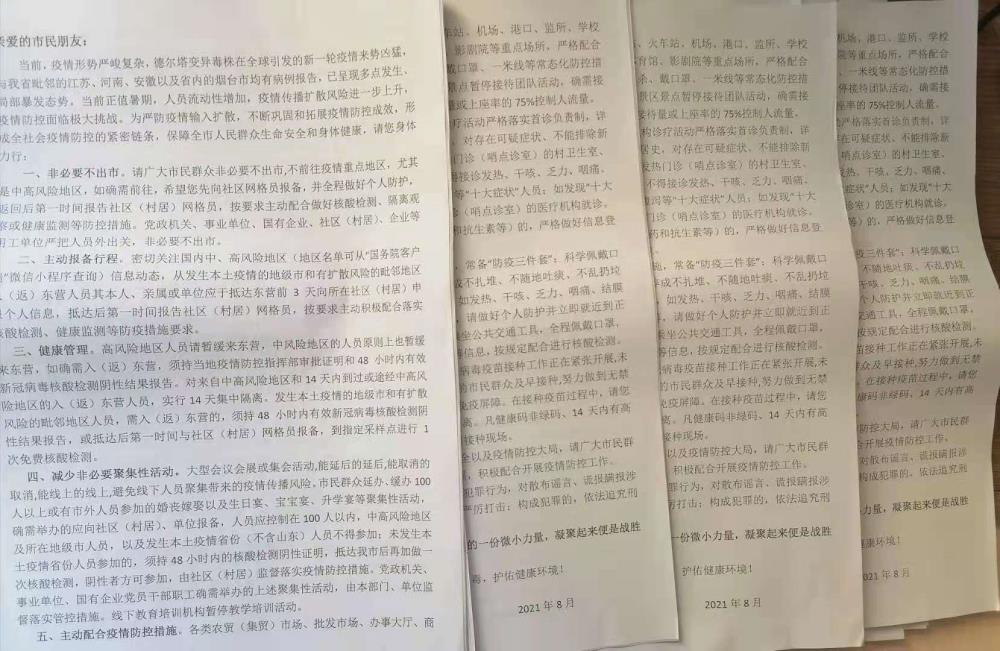 亲爱的市民朋友：
当前，疫情形势严峻复杂，德尔塔变异毒株在全球引发的新一轮疫情来势凶猛，
与我省毗邻的江苏、河南、安徽以及省内的烟台市均有病例报告，已呈现多点发生、
局部暴发态势。当前正值暑期，人员流动性增加，疫情传播扩散风险进一步上升，
疫情防控面临极大挑战。为严防疫情输入扩散，不断巩固和拓展疫情防控成效，形
成全社会疫情防控的紧密链条，保障全市人民群众生命安全和身体健康，请您身体
力行：
一、非必要不出市。请广大市民群众非必要不出市,不前往疫情重点地区，尤其
是中高风险地区，如确需前往，希望您先向社区网格员报备，并全程做好个人防护，
返回后第一时间报告社区（村居）网格员，按要求主动配合做好核酸检测、隔离观
察或健康监测等防控措施。党政机关、事业单位、国有企业、社区（村居）、企业等
用工单位严把人员外出关，非必要不出市。
二、主动报备行程。密切关注国内中、高风险地区（地区名单可从"国务院客户
端"微信小程序查询）信息动态，从发生本土疫情的地级市和有扩散风险的毗邻地区
（返）东营人员其本人、亲属或单位应于抵达东营前 3 天向所在社区（村居）申
报个人信息，抵达后第一时间报告社区（村居）网格员，按要求主动积极配合落实
核酸检测、健康监测等防疫措施要求。
三、健康管理。高风险地区人员请暂缓来东营，中风险地区的人员原则上也暂缓
来东营，如确需入（返）东营，须持当地疫情防控指挥部审批证明和 48 小时内有效
新冠病毒核酸检测阴性结果报告。对来自中高风险地区和 14 天内到过或途经中高风
险地区的入（返）东营人员，实行 14 天集中隔离。发生本土疫情的地级市和有扩散
风险的毗邻地区人员，需入（返）东营的，须持 48 小时内有效新冠病毒核酸检测阴
性结果报告，或抵达后第一时间与社区（村居）网格员报备，到指定采样点进行 1
次免费核酸检测。
四、减少非必要聚集性活动。大型会议会展或集会活动,能延后的延后,能取消的
取消,能线上的线上,避免线下人员聚集带来的疫情传播风险。市民群众延办、缓办 100
人以上或有市外人员参加的婚丧嫁娶以及生日宴、宝宝宴、升学宴等聚集性活动，
确需举办的应向社区（村居）、单位报备，人员应控制在 100 人以内，中高风险地区
及所在地级市人员，以及发生本土疫情省份（不含山东）人员不得参加；未发生本
土疫情省份人员参加的，须持 48 小时内的核酸检测阴性证明，抵达我市后再加做一
次核酸检测，阴性者方可参加，由社区（村居）监督落实疫情防控措施。党政机关、
事业单位、国有企业党员干部职工确需举办的上述聚集性活动，由本部门、单位监
督落实管控措施。线下教育培训机构暂停教学培训活动。
五、主动配合疫情防控措施。各类农贸（集贸）市场、批发市场、办事大厅、商
车站、机场、港口、监所、学校
影剧院等重点场所，严格配合
戴口罩、一米线等常态化防控措
景点暂停接待团队活动，确需接
量或上座率的 75%控制人流量。
疗活动严格落实首诊负责制，详
，对存在可疑症状、不能排除新
门诊（哨点诊室）的村卫生室、
得接诊发热、干咳、乏力、咽痛、
等"十大症状"人员；如发现"十大
（哨点诊室）的医疗机构就诊。
和抗生素等）的，严格做好信息登
，常备"防疫三件套"；科学佩戴口
成不扎堆、不随地吐痰、不乱扔垃
如发热、干咳、乏力、咽痛、结膜
，请做好个人防护并立即就近到正
乘坐公共交通工具，全程佩戴口罩，
等信息，按规定配合进行核酸检测。
病毒疫苗接种工作正在紧张开展,未
的市民群众及早接种,努力做到无禁
免疫屏障。在接种疫苗过程中，请您
离。凡健康码非绿码、14 天内有高
接种现场。
全以及疫情防控大局，请广大市民群
，积极配合开展疫情防控工作。
犯罪行为，对散布谣言、谎报瞒报涉
厉打击；构成犯罪的，依法追究刑
的一份微小力量，凝聚起来便是战胜
毒，护佑健康环境！
2021 年 8 月
、火车站、机场、港口、监所、学校
育馆、影剧院等重点场所，严格配合
杀、戴口罩、一米线等常态化防控措
景区景点暂停接待团队活动，确需接
接待量或上座率的 75%控制人流量。
构诊疗活动严格落实首诊负责制，详
居史，对存在可疑症状、不能排除新
发热门诊（哨点诊室）的村卫生室、
不得接诊发热、干咳、乏力、咽痛、
泻等"十大症状"人员；如发现"十大
诊（哨点诊室）的医疗机构就诊。
药和抗生素等）的，严格做好信息登
施，常备"防疫三件套"；科学佩戴口
成不扎堆、不随地吐痰、不乱扔垃
如发热、干咳、乏力、咽痛、结膜
，请做好个人防护并立即就近到正
乘坐公共交通工具，全程佩戴口罩，
等信息，按规定配合进行核酸检测。
病毒疫苗接种工作正在紧张开展,未
的市民群众及早接种,努力做到无禁
免疫屏障。在接种疫苗过程中，请您
离。凡健康码非绿码、14 天内有高
接种现场。
以及疫情防控大局，请广大市民群
积极配合开展疫情防控工作。
犯罪行为，对散布谣言、谎报瞒报涉
厉打击；构成犯罪的，依法追究刑
一份微小力量，凝聚起来便是战胜
护佑健康环境！
2021 年 8 月
机场、港口、监所、学校
院等重点场所，严格配合
罩、一米线等常态化防控措
停接待团队活动，确需接
上座率的 75%控制人流量。
动严格落实首诊负责制，详
对存在可疑症状、不能排除新
（哨点诊室）的村卫生室、
诊发热、干咳、乏力、咽痛、
"十大症状"人员；如发现"十大
哨点诊室）的医疗机构就诊。
抗生素等）的，严格做好信息登
常备"防疫三件套"；科学佩戴口
不扎堆、不随地吐痰、不乱扔垃
发热、干咳、乏力、咽痛、结膜
个人防护并立即就近到正
公共交通工具，全程佩戴口罩，
信息，按规定配合进行核酸检测。
疫苗接种工作正在紧张开展,未
众及早接种,努力做到无禁
。在接种疫苗过程中，请您
康码非绿码、14 天内有高
防控大局，请广大市民群
开展疫情防控工作。
对散布谣言、谎报瞒报涉
构成犯罪的，依法追究刑
力量，凝聚起来便是战胜
康环境！
2021 年 8 月